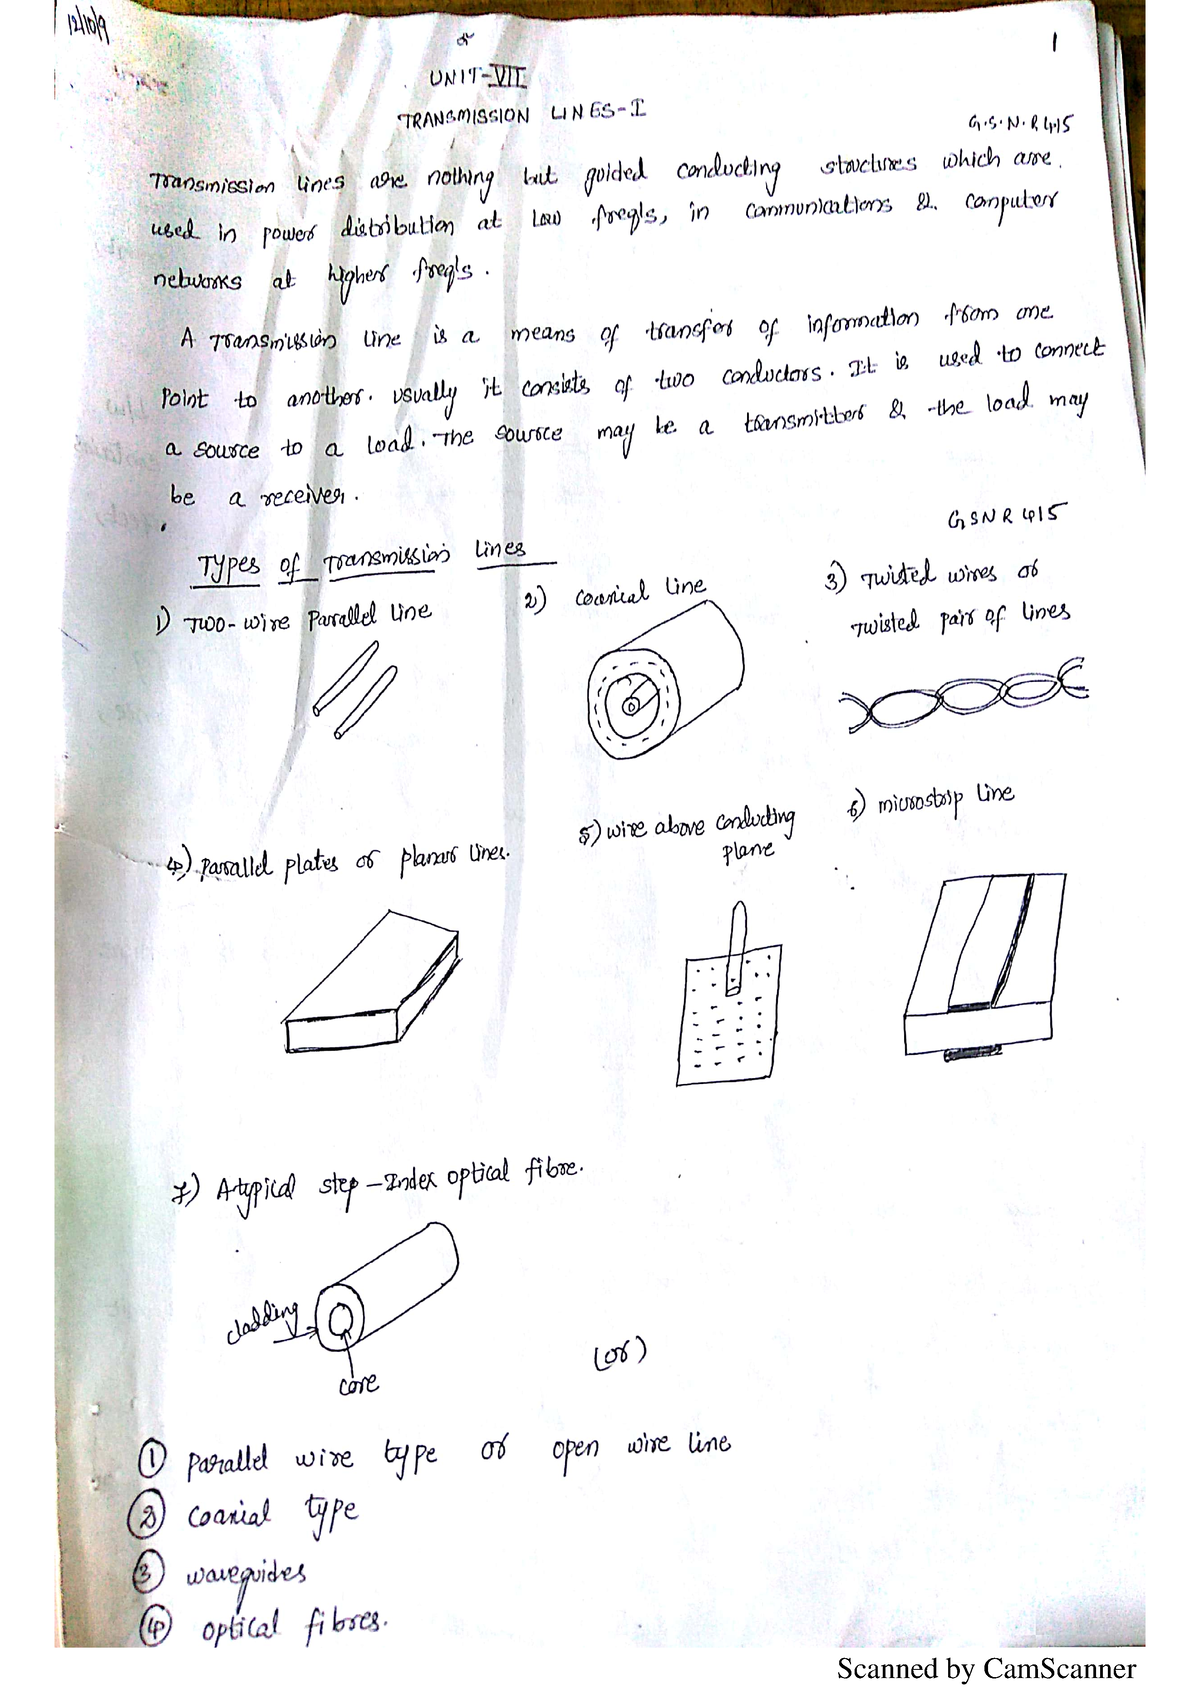 12/10/9
1
UNIT-VII
TRANSMISSION LINES-I
G.S.N.R 415
Transmission lines are nothing but guided conducting structures which are
used in power distribution at low freq's, in communications & computer
networks at higher freq's.
A Transmission line is a means of transfer of information from one
point to another. usually it consists of two conductors. It is used to connect
a source to a load. The source may be a transmitter & the load may
be a receiver.
GSNR 415
Types of Transmission lines
1) Two-wire Parallel line
2) coaxial line
3) Twisted wires or
Twisted pair of lines
4) parallel plates or planar lines.
5) wire above conducting
plane
6) microstrip line
7) A typical step-Index optical fibre.
cladding
core
(or)
1 parallel wire type or open wire line
2 coaxial type
3 waveguides
4 optical fibres.
Scanned by CamScanner